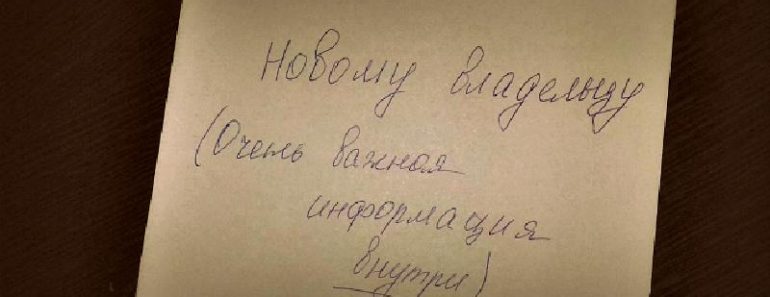 Новому владельцу
(Очень важная
информация
внутри)